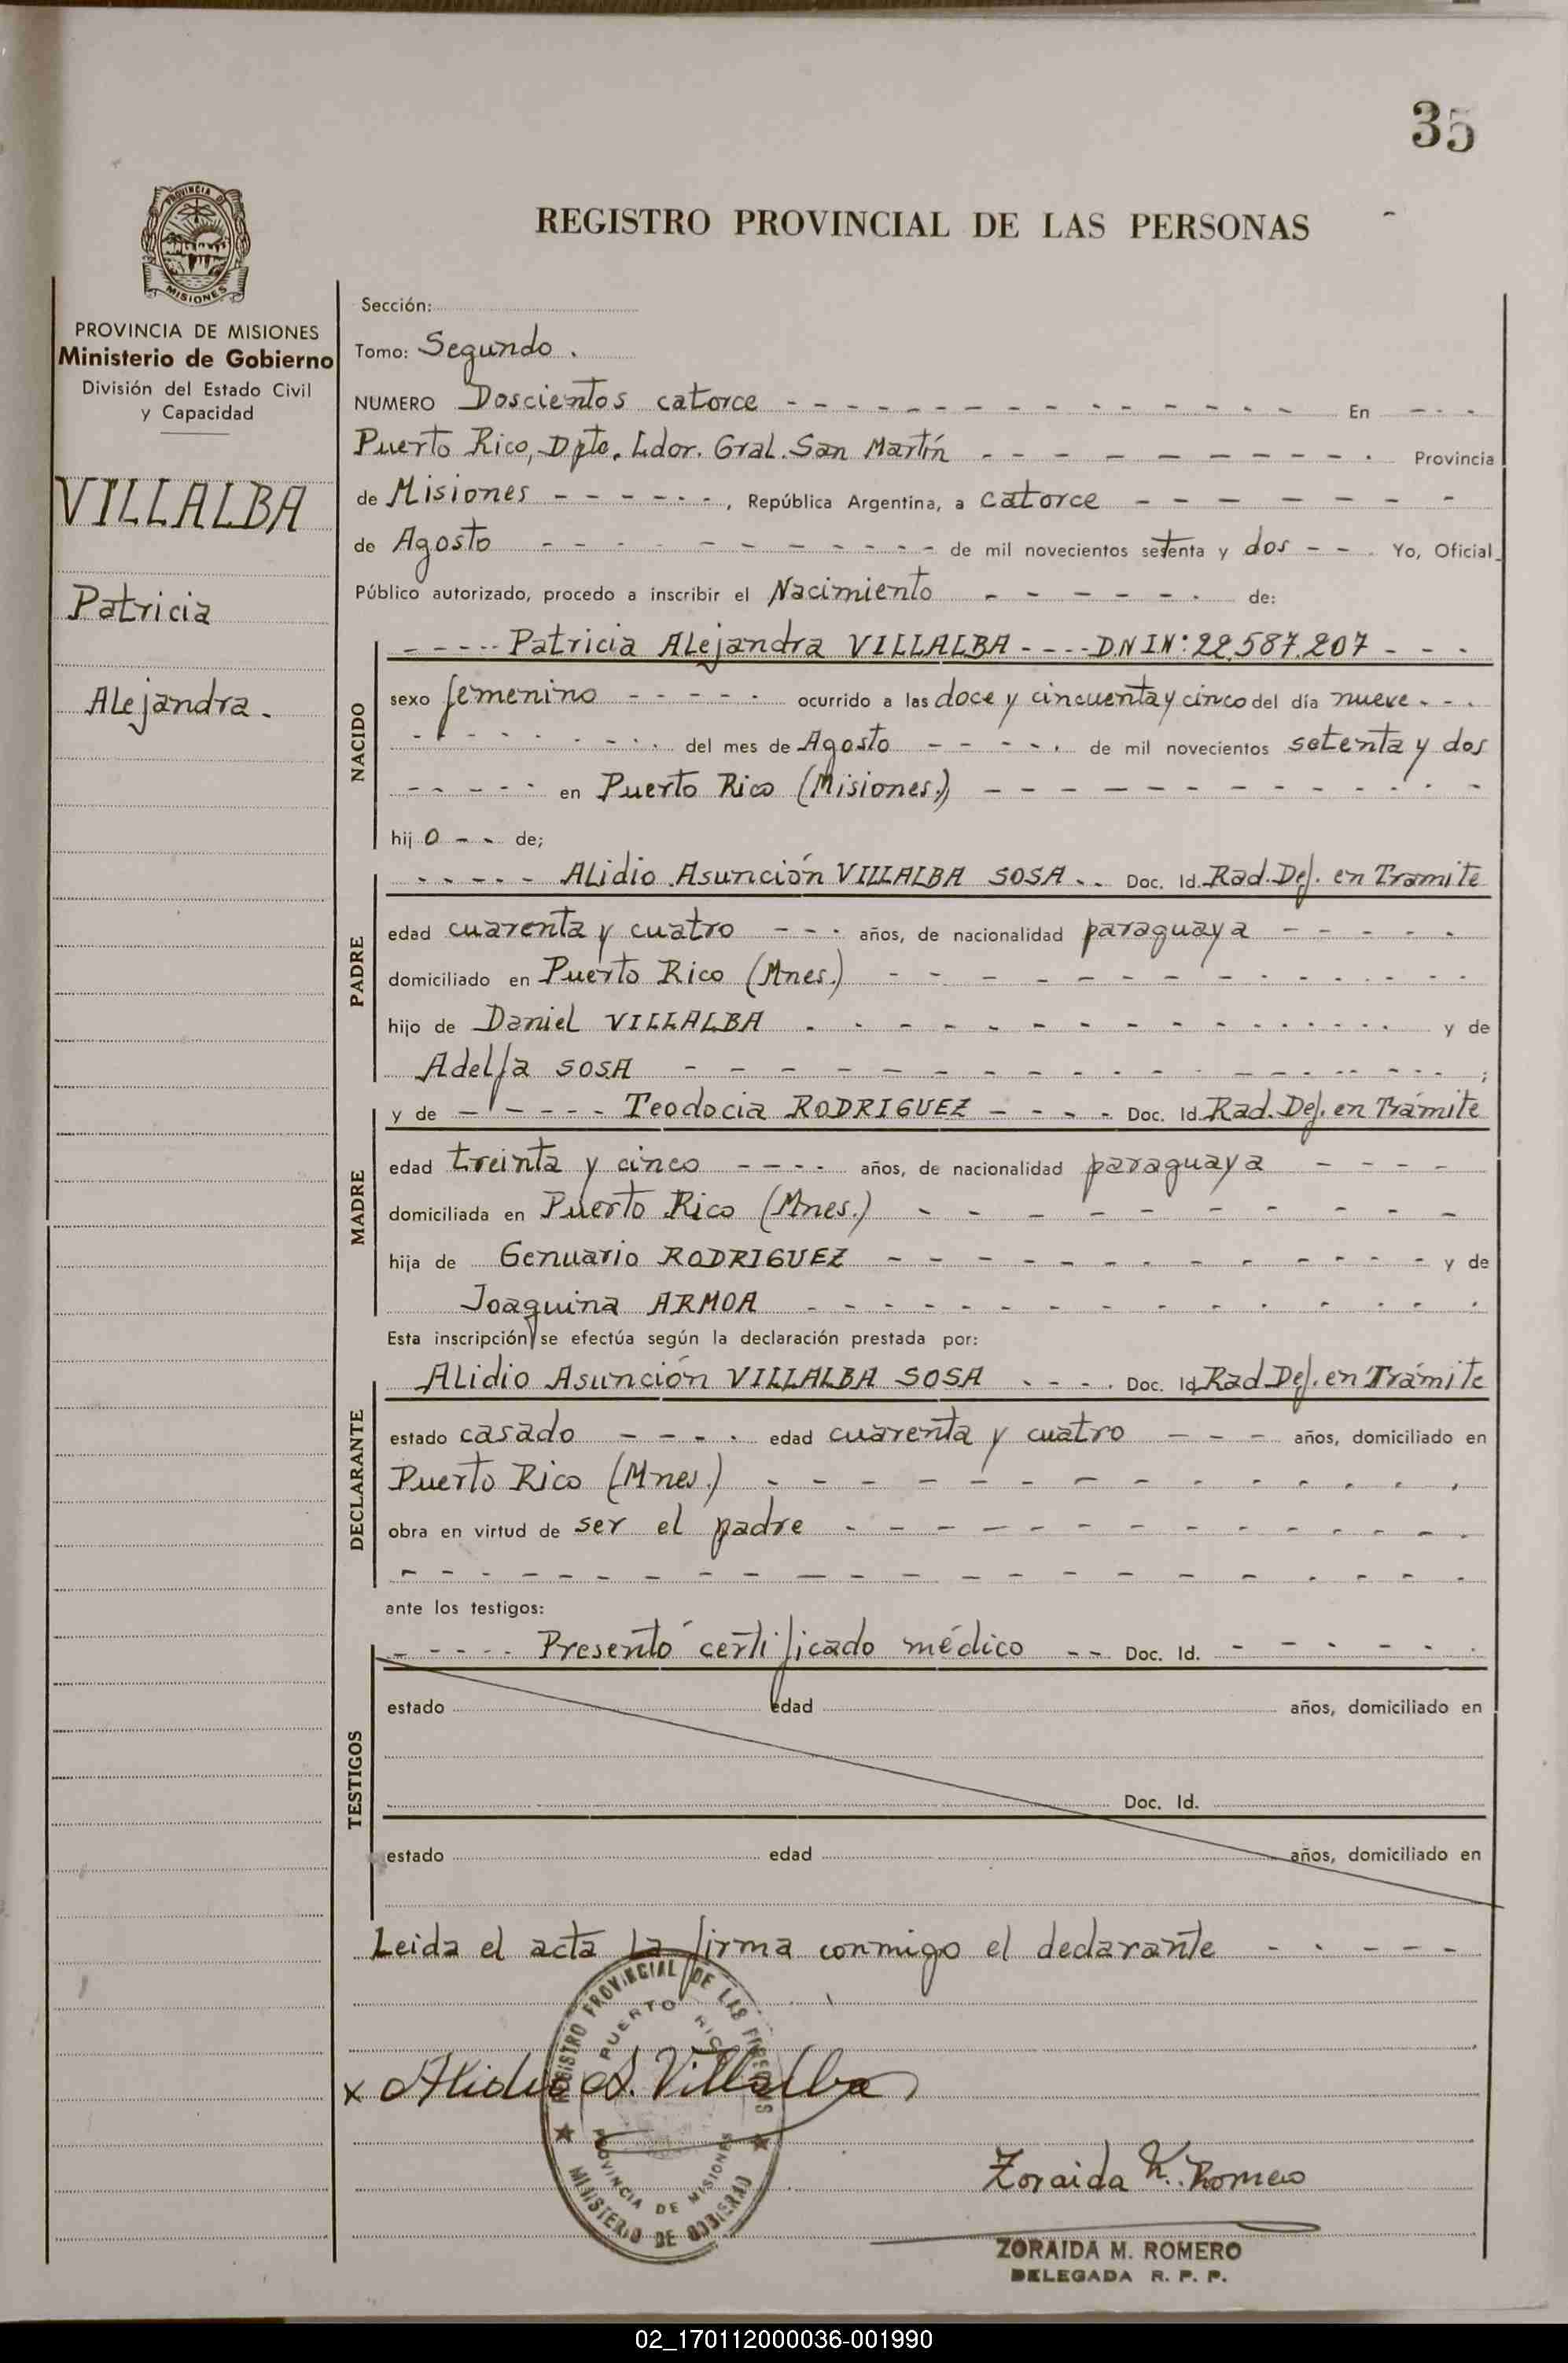 35
PROVINCIA DE
MISIONES
REGISTRO PROVINCIAL DE LAS PERSONAS
PROVINCIA DE MISIONES
Ministerio de Gobierno
División del Estado Civil
y Capacidad
VILLALBA
Patricia
Alejandra.
Sección:
Tomo: Segundo.
NUMERO Doscientos catorce - - - En - - -
Puerto Rico, Dpto. Ldor. Gral. San Martín - - - Provincia
de Misiones - - - , República Argentina, a catorce - - -
de Agosto - - - de mil novecientos setenta y dos - - - Yo, Oficial
Público autorizado, procedo a inscribir el Nacimiento - - - de:
NACIDO
- - - Patricia Alejandra VILLALBA - - - DNI N: 22.587.207 - - -
sexo femenino - - - ocurrido a las doce y cincuenta y cinco del día nueve - - -
- - - del mes de Agosto - - - de mil novecientos setenta y dos
- - - en Puerto Rico (Misiones.) - - -
hij o - - de;
PADRE
- - - Alidio Asunción VILLALBA SOSA - - Doc. Id. Rad. Def. en Tramite
edad cuarenta y cuatro - - - años, de nacionalidad paraguaya - - -
domiciliado en Puerto Rico (Mnes.) - - -
hijo de Daniel VILLALBA - - - y de
Adelfa SOSA - - - ;
MADRE
y de - - - Teodocia RODRIGUEZ - - - Doc. Id. Rad. Def. en Trámite
edad treinta y cinco - - - años, de nacionalidad paraguaya - - -
domiciliada en Puerto Rico (Mnes.) - - -
hija de Genuario RODRIGUEZ - - - y de
Joaquina ARMOA - - -
Esta inscripción se efectúa según la declaración prestada por:
DECLARANTE
Alidio Asunción VILLALBA SOSA - - - Doc. Id. Rad Def. en Trámite
estado casado - - - edad cuarenta y cuatro - - - años, domiciliado en
Puerto Rico (Mnes.) - - -
obra en virtud de ser el padre - - -
ante los testigos:
TESTIGOS
- - - Presentó certificado médico - - Doc. Id. - - -
estado edad años, domiciliado en
Doc. Id.
estado edad años, domiciliado en
Leida el acta la firma conmigo el declarante - - -
REGISTRO PROVINCIAL DE LAS PERSONAS
PUERTO RICO
PROVINCIA DE MISIONES
MINISTERIO DE GOBIERNO
x Alidio A. Villalba
Zoraida M. Romero
ZORAIDA M. ROMERO
DELEGADA R. P. P.
02_170112000036-001990